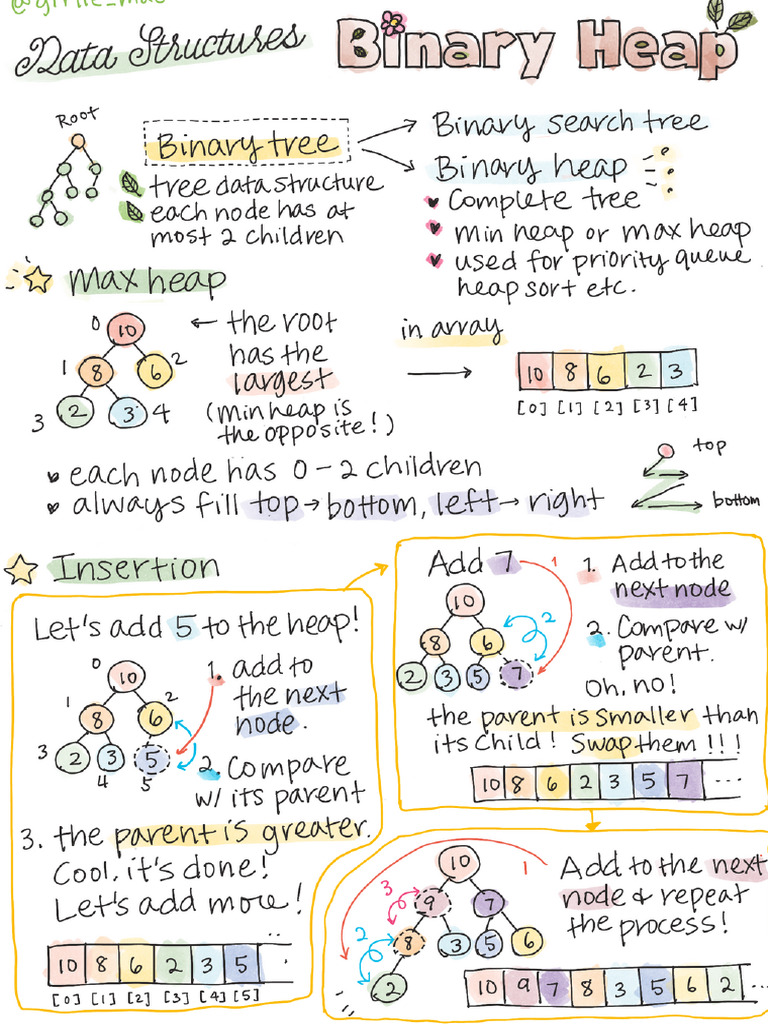 Data Structures Binary Heap
Root
Binary tree
tree data structure
each node has at
most 2 children
Binary search tree
Binary heap
Complete tree
min heap or max heap
used for priority queue
heap sort etc.
Max heap
0 10
1 8 6 2
3 2 3 4
← the root
has the
largest
(min heap is
the opposite!)
in array
10 8 6 2 3
[0] [1] [2] [3] [4]
each node has 0-2 children
always fill top → bottom, left → right
top
bottom
Insertion
Let's add 5 to the heap!
0 10
1 8 6 2
3 2 3 5
4 5
1. add to
the next
node.
2. Compare
w/ its parent
3. the parent is greater.
Cool, it's done!
Let's add more!
10 8 6 2 3 5
[0] [1] [2] [3] [4] [5]
Add 7
1
10
2
8 6
2 3 5 7
1. Add to the
next node
2. Compare w/
parent.
Oh, no!
the parent is smaller than
its child! Swap them!!!
10 8 6 2 3 5 7 ...
10
1
3 9 7
2 8 3 5 6
2
Add to the next
node & repeat
the process!
10 9 7 8 3 5 6 2 ...